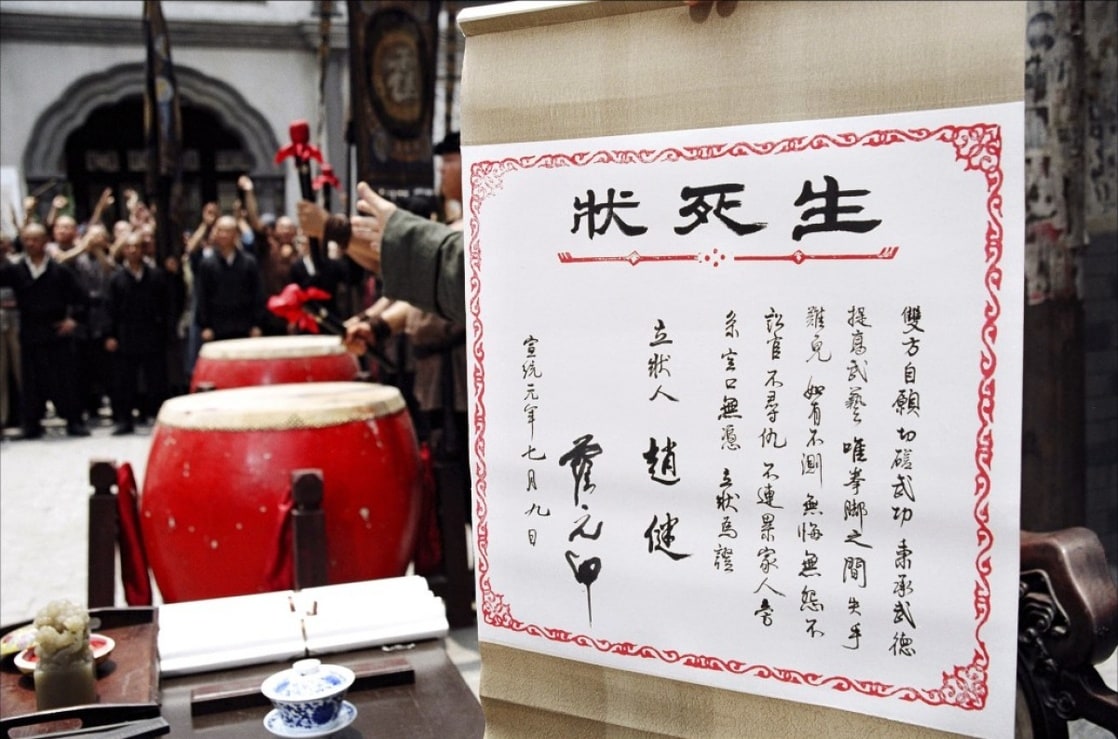 生死狀
雙方自願切磋武功 秉承武德
提高武藝 唯拳腳之間失手
難免 如有不測 無悔無怨不
訟官 不尋仇 不連累家人旁
系 空口無憑 立狀為證
立狀人 趙健
霍元甲
宣統元年七月九日